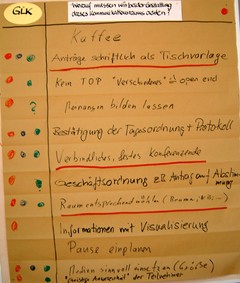 GLK
Worauf müssen wir bei der Gestaltung
dieses Kommunikationsraums achten?
Kaffee
Anträge schriftlich als Tischvorlage
Kein TOP "Verschiedenes" open end
?
Meinungen bilden lassen
Bestätigung der Tagesordnung + Protokoll
Verbindliches, festes Konferenzende
Geschäftsordnung z.B. Antrag auf Abstim-
mung
Raum entsprechend wählen
Informationen mit Visualisierung
Pause einplanen
Medien sinnvoll einsetzen (Größe)
der Teilnehmer